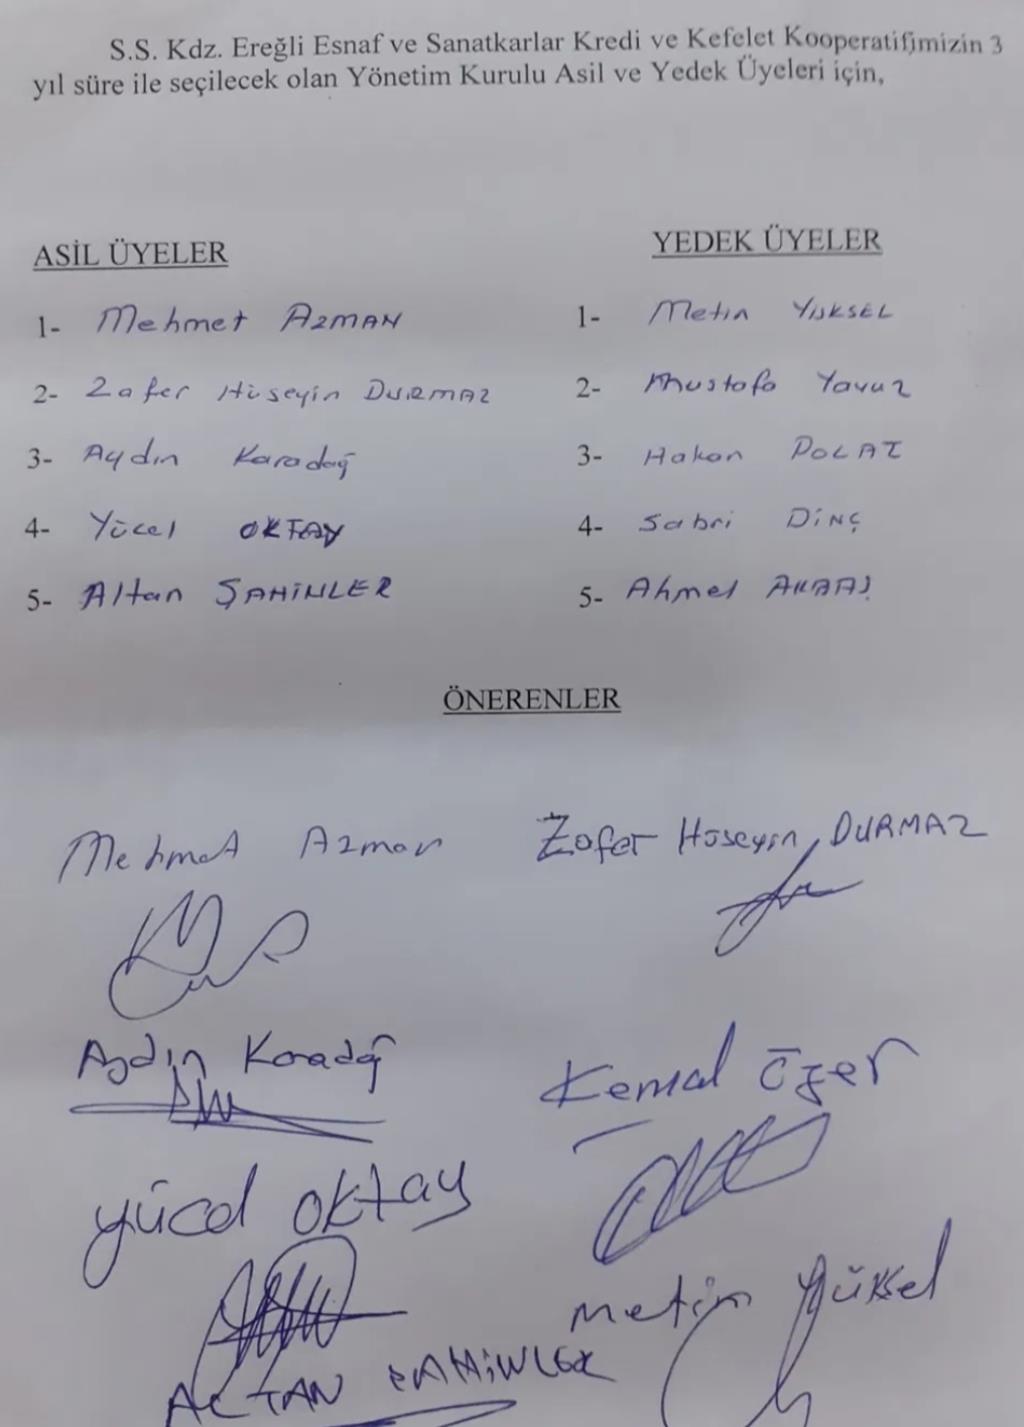 S.S. Kdz. Ereğli Esnaf ve Sanatkarlar Kredi ve Kefelet Kooperatifimizin 3
yıl süre ile seçilecek olan Yönetim Kurulu Asil ve Yedek Üyeleri için,
ASİL ÜYELER
1- Mehmet AZMAN
2- Zafer Hüseyin DURMAZ
3- Aydın Karadağ
4- Yücel OKTAY
5- Altan ŞAHİNLER
YEDEK ÜYELER
1- Metin YÜKSEL
2- Mustafa Yavuz
3- Hakan POLAT
4- Sabri DİNÇ
5- Ahmet AKBAŞ
ÖNERENLER
Mehmet Azman
Zafer Hüseyin DURMAZ
Aydın Karadağ
Kemal Özer
Yücel OKtay
Metin Yüksel
ALTAN ŞAHİNLER